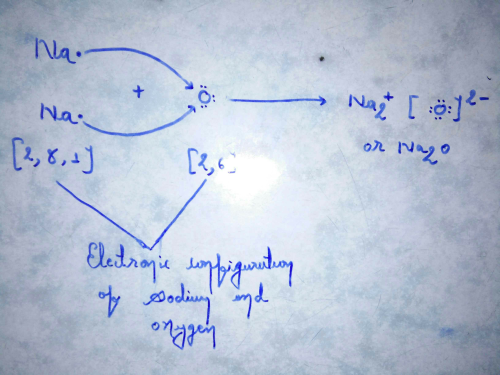 Na·
+ :Ö: → Na₂⁺ [:Ö:]²⁻
Na·
or Na₂O
[2, 8, 1] [2, 6]
Electronic configuration
of Sodium and
oxygen